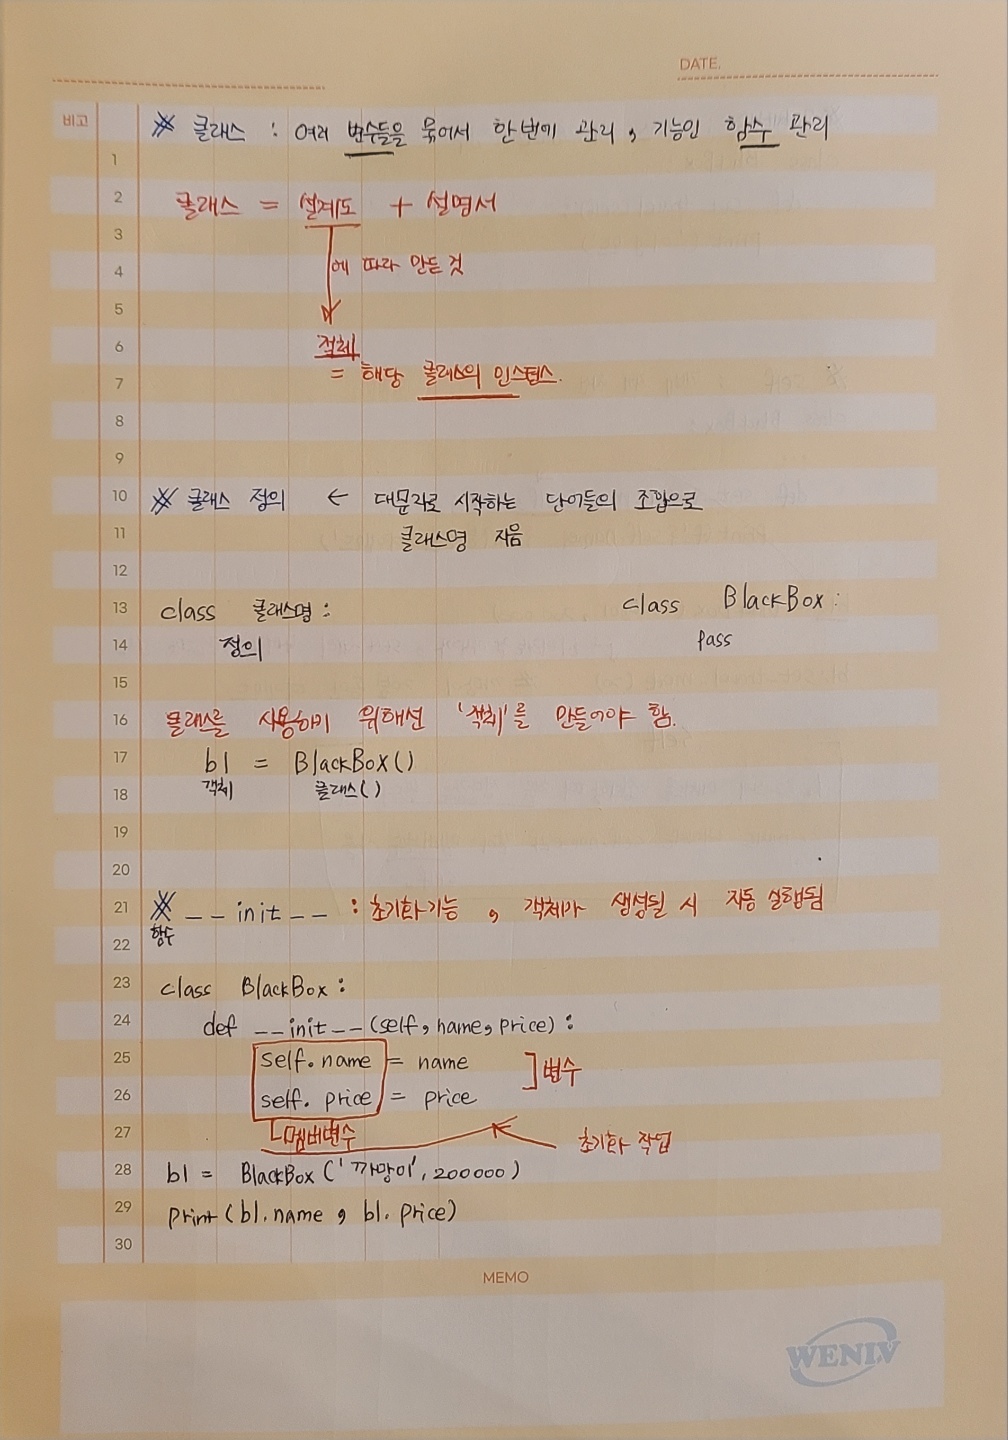 DATE.
비고
※ 클래스 : 여러 변수들을 묶어서 한번에 관리, 기능인 함수 관리
1
2 클래스 = 설계도 + 설명서
3
에 따라 만든 것
4
5
6 객체
7 = 해당 클래스의 인스턴스.
8
9
10 ※ 클래스 정의 ← 대문자로 시작하는 단어들의 조합으로
11 클래스명 지음
12
13 class 클래스명: class BlackBox:
14 정의 pass
15
16 클래스를 사용하기 위해선 '객체'를 만들어야 함.
17 b1 = BlackBox()
18 객체 클래스()
19
20
21 ※ __init__ : 초기화기능, 객체가 생성될 시 자동 실행됨
22 함수
23 class BlackBox:
24 def __init__(self, name, price):
25 self.name = name ] 변수
26 self.price = price
27 멤버변수 초기화 작업
28 b1 = BlackBox('까망이', 200000)
29 print(b1.name, b1.price)
30
MEMO
WENIV